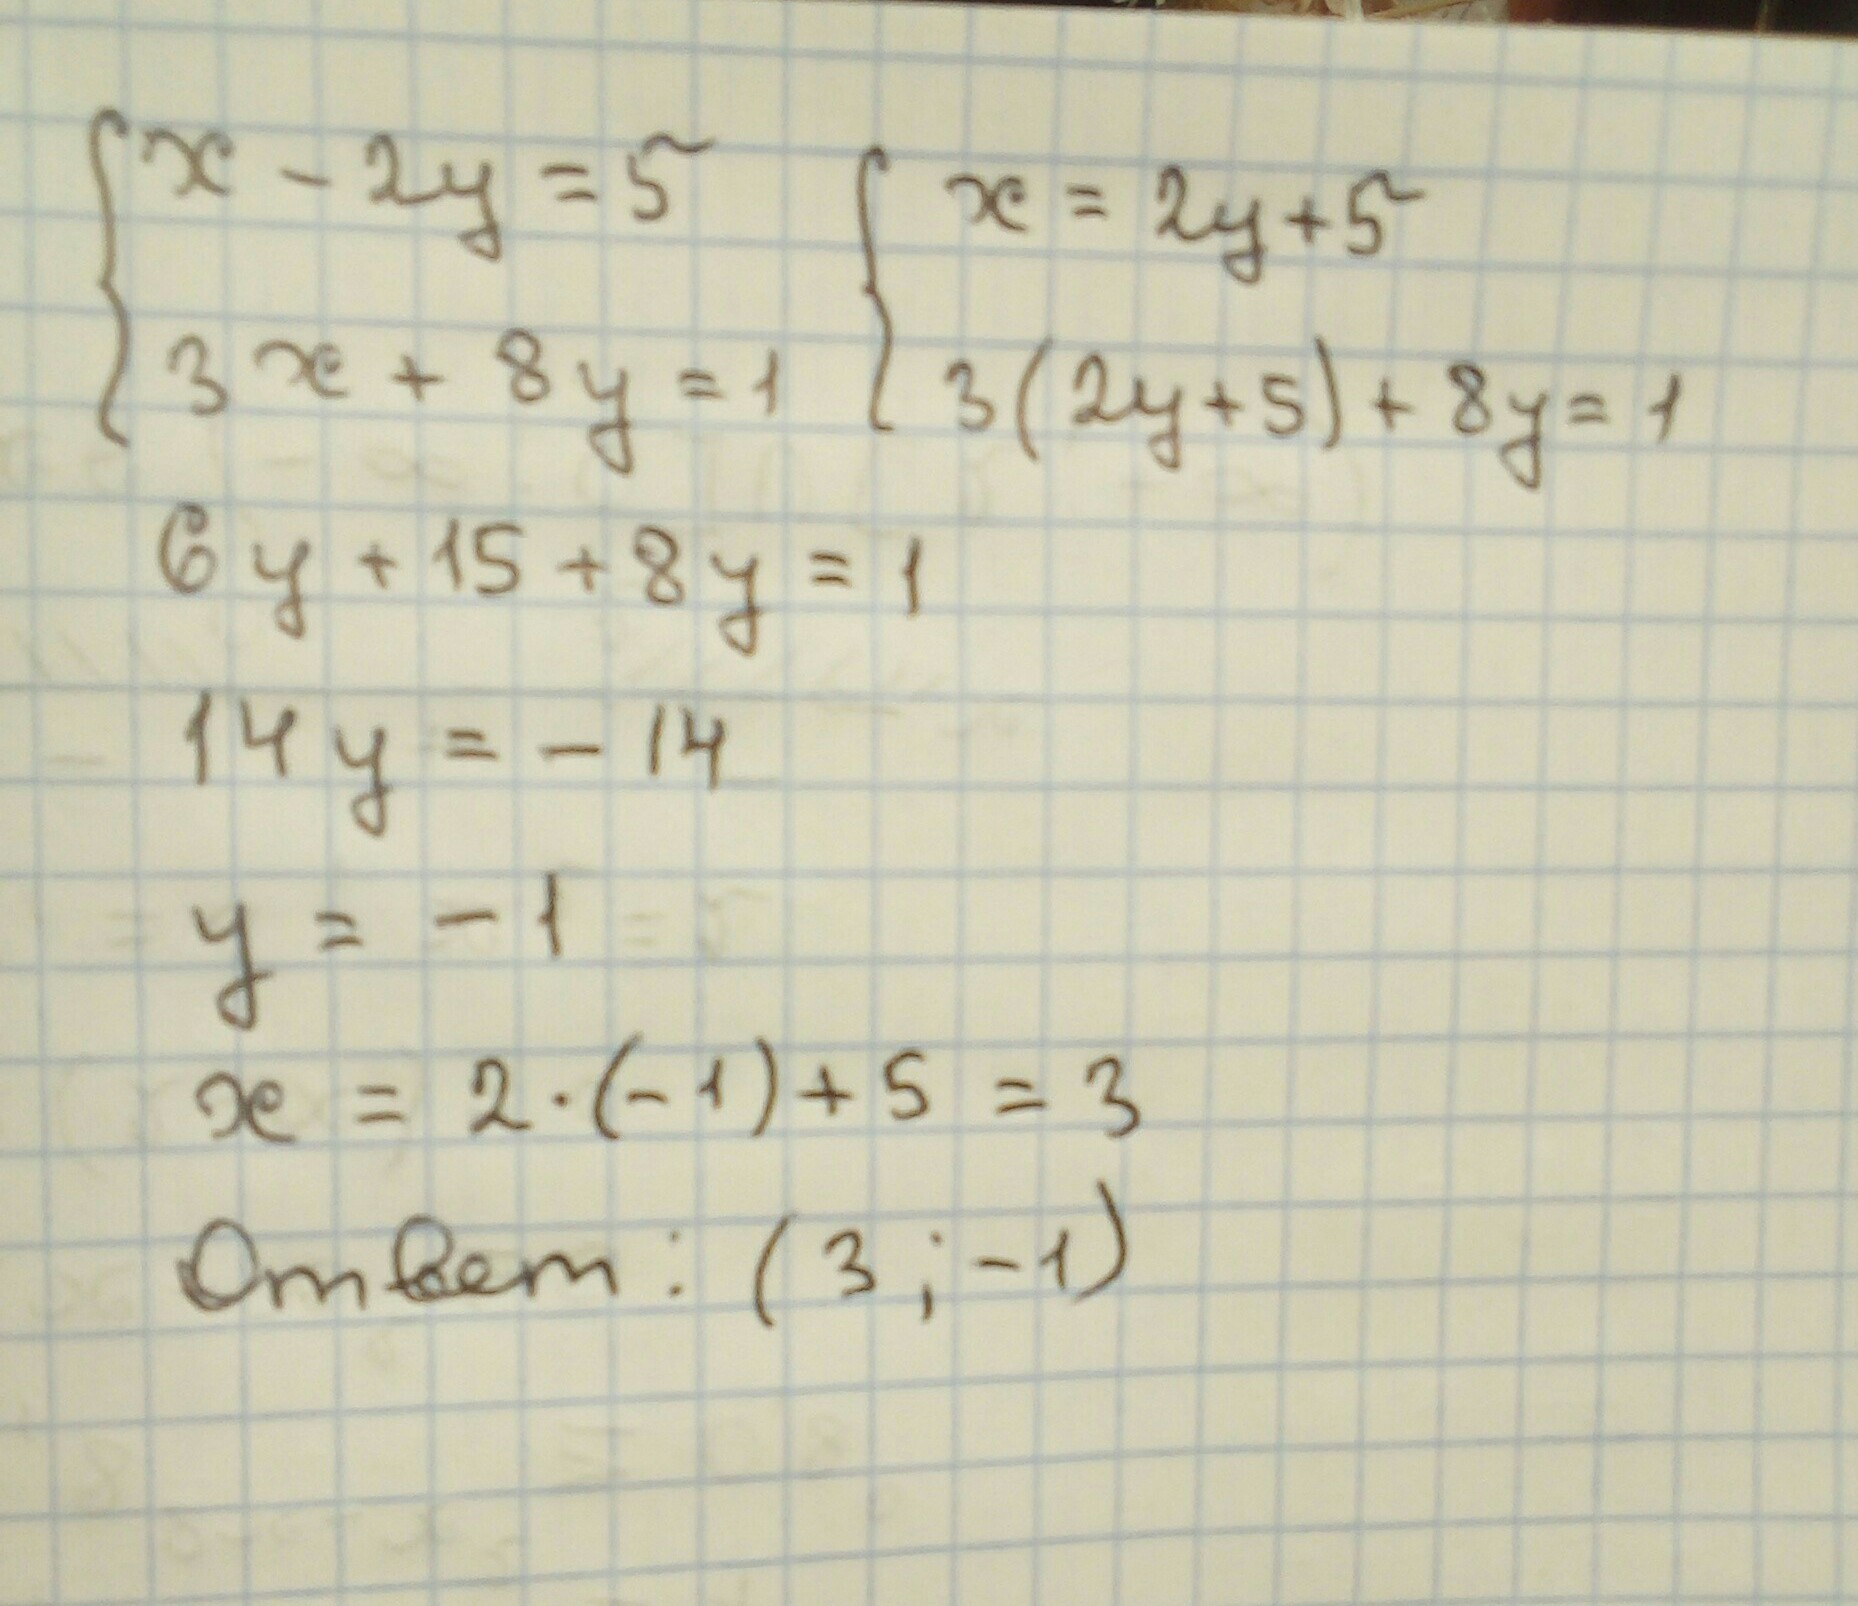 { x - 2y = 5 { x = 2y + 5
3x + 8y = 1 3(2y + 5) + 8y = 1
6y + 15 + 8y = 1
14y = - 14
y = - 1
x = 2 · (- 1) + 5 = 3
Ответ: (3 ; - 1)